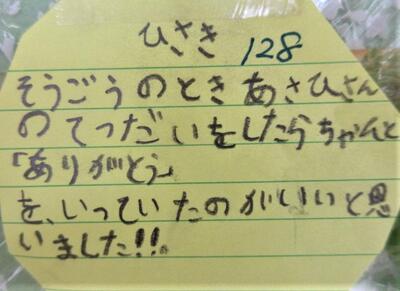 ひさき 128
そうごうのときあさひさん
のてつだいをしたらちゃんと
「ありがとう」
を、いっていたのがいいと思
いました!!。